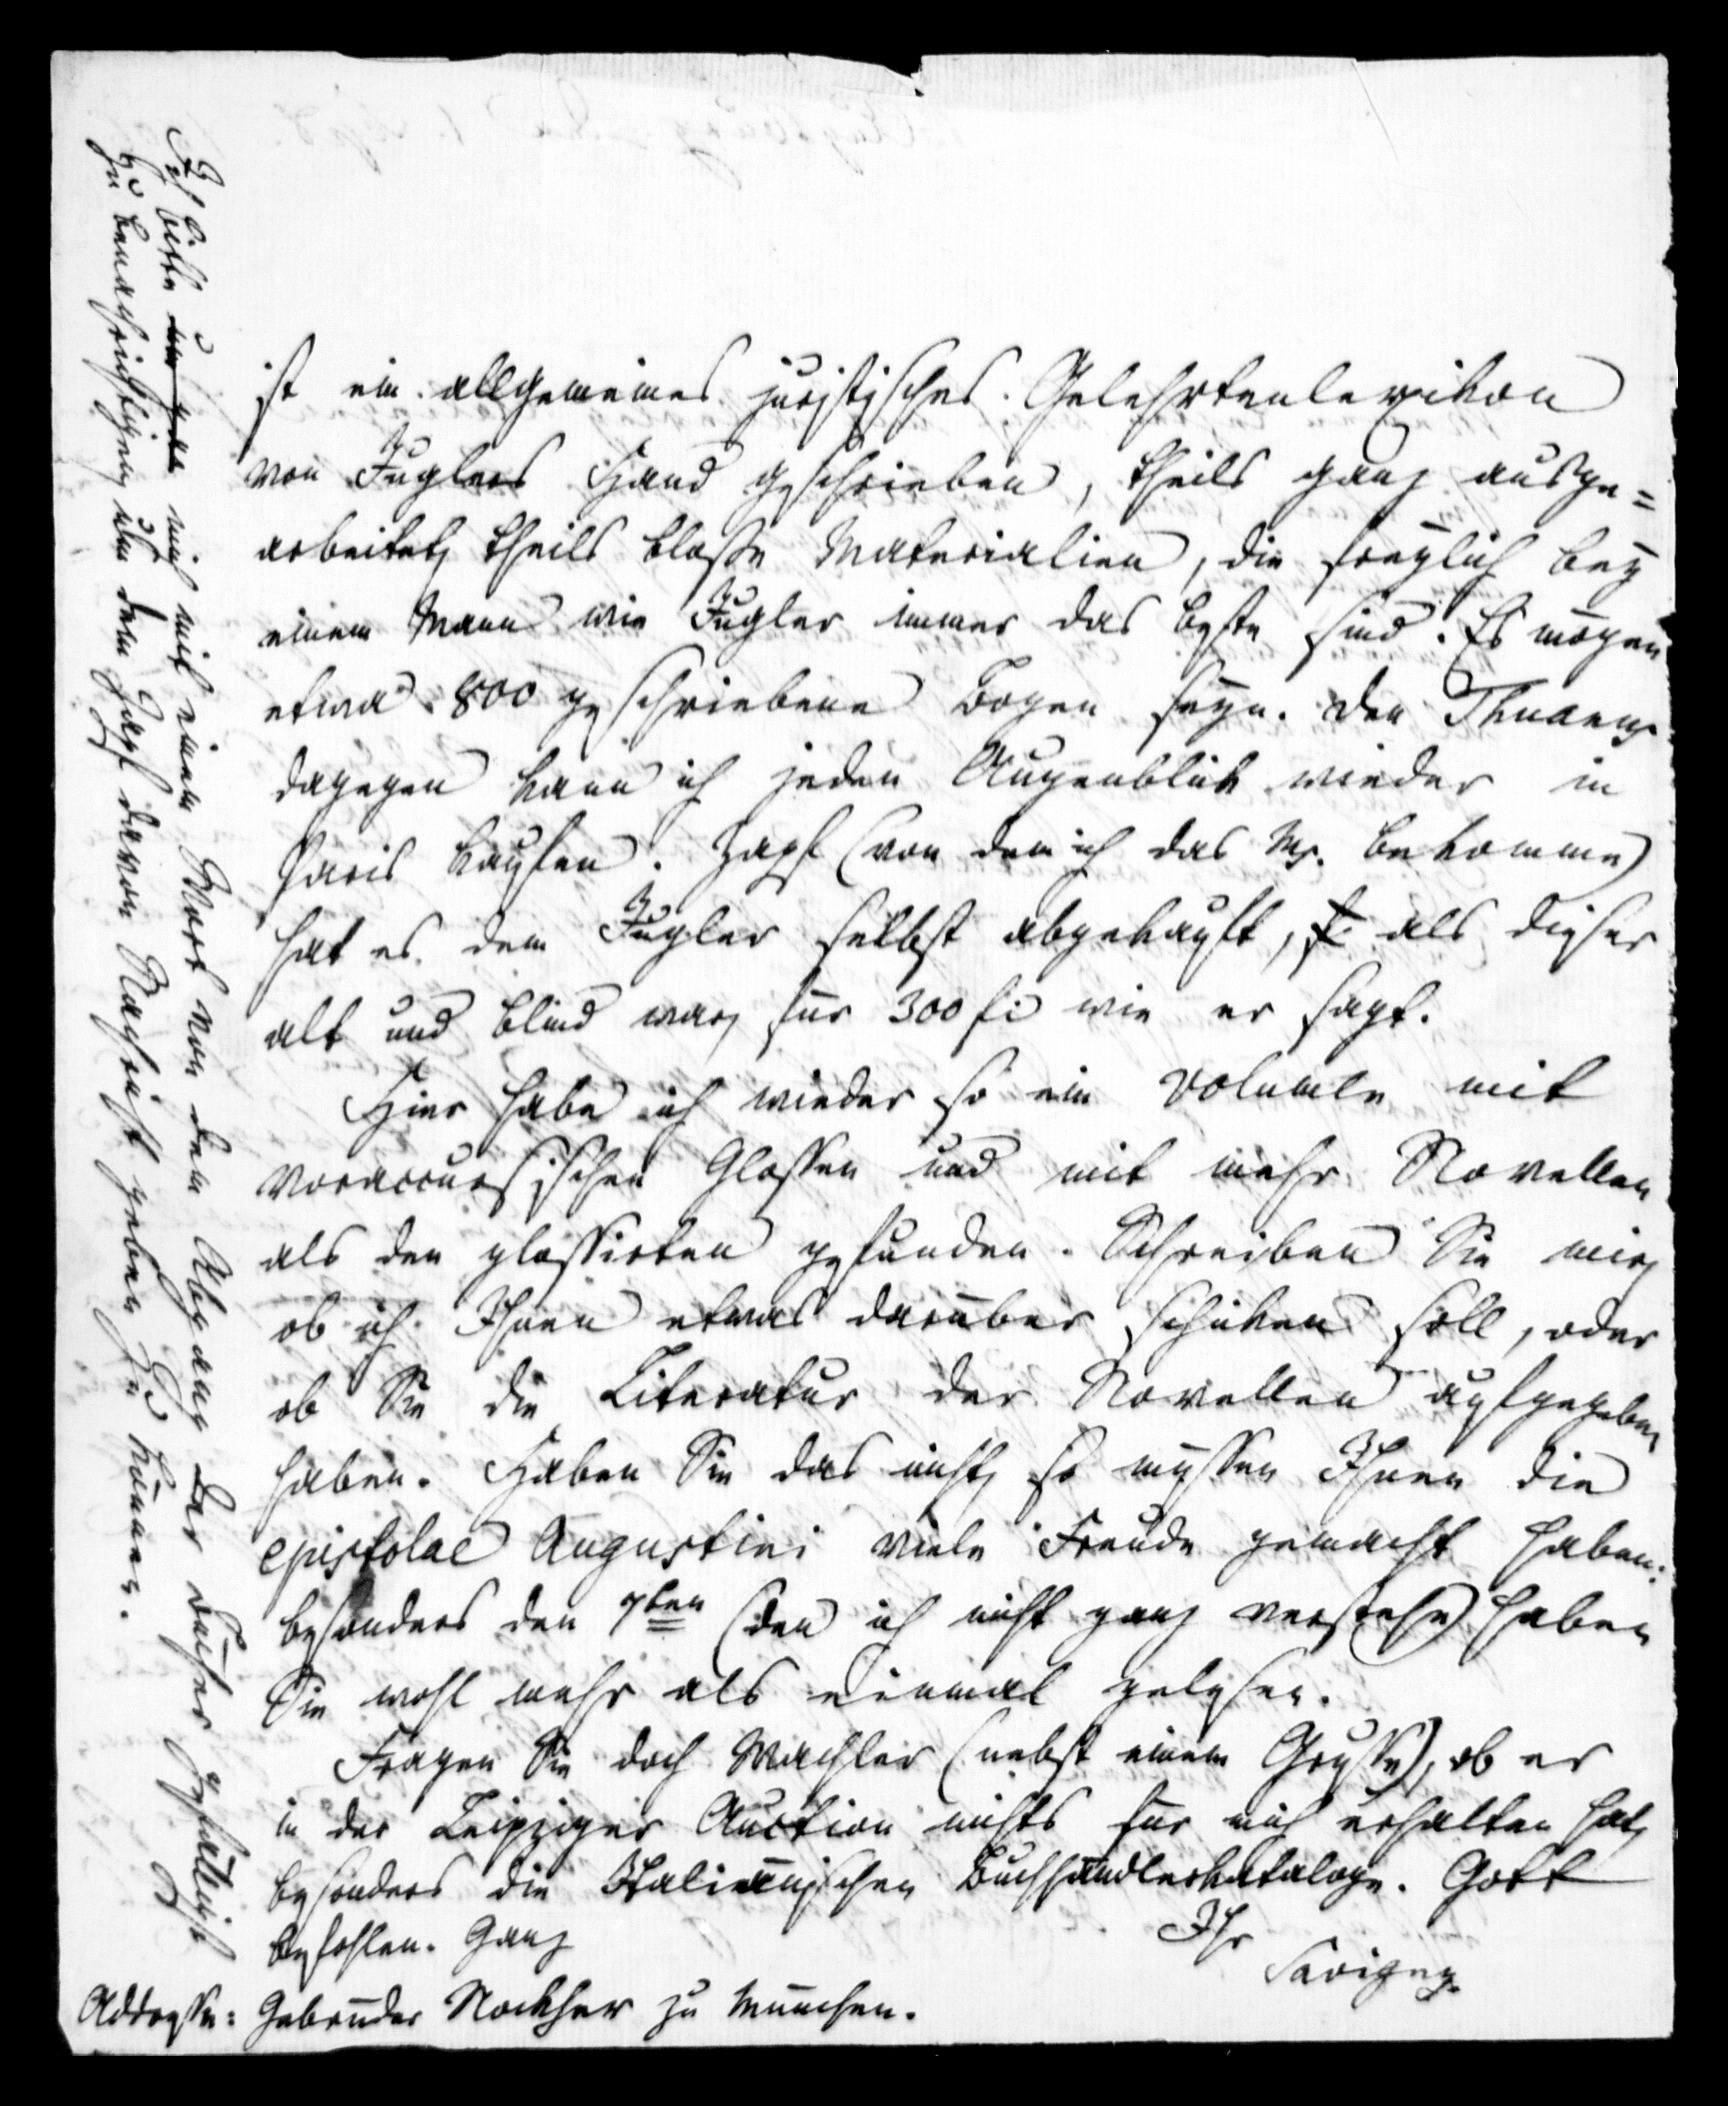 ist ein allgemeines juristisches Gelehrtenlexikon
von Juglers Hand geschrieben, theils ganz ausge=
arbeitet, theils blosse Materialien, die freylich bey
einem Mann wie Jugler immer das beste sind. Es mögen
etwa 800 geschriebene Bogen seyn. Den Thuanus
dagegen kann ich jeden Augenblick wieder in
Paris kaufen. Zapf (von dem ich das Ms. bekomme)
hat es dem Jugler selbst abgekauft, als dieser
alt und blind war, für 300 fl wie er sagt.
Hier habe ich wieder so ein Volumen mit
voraccursischen Glossen und mit mehr Novellen
als den glossirten gefunden. Schreiben Sie mir,
ob ich Ihnen etwas darüber schicken soll, oder
ob Sie die Literatur der Novellen aufgegeben
haben. Haben Sie das nicht, so müssen Ihnen die
epistolae Augustini viele Freude gemacht haben:
besonders den 7ten (den ich nicht ganz verstehe) haben
Sie wohl mehr als einmal gelesen.
Fragen Sie doch Wachler (nebst einem Grusse), ob er
in der Leipziger Auction nichts für mich erhalten hat,
besonders die Italiänischen Buchhändlerkataloge. Gott
befohlen. Ganz
Ihr
Savigny.
Addresse: Gebrüder Nockher zu München.
Ich bitte mich mit einem Wort von dem Abgang der Bücher gefälligst
zu benachrichtigen, um dem Zapf davon Nachricht geben zu können.